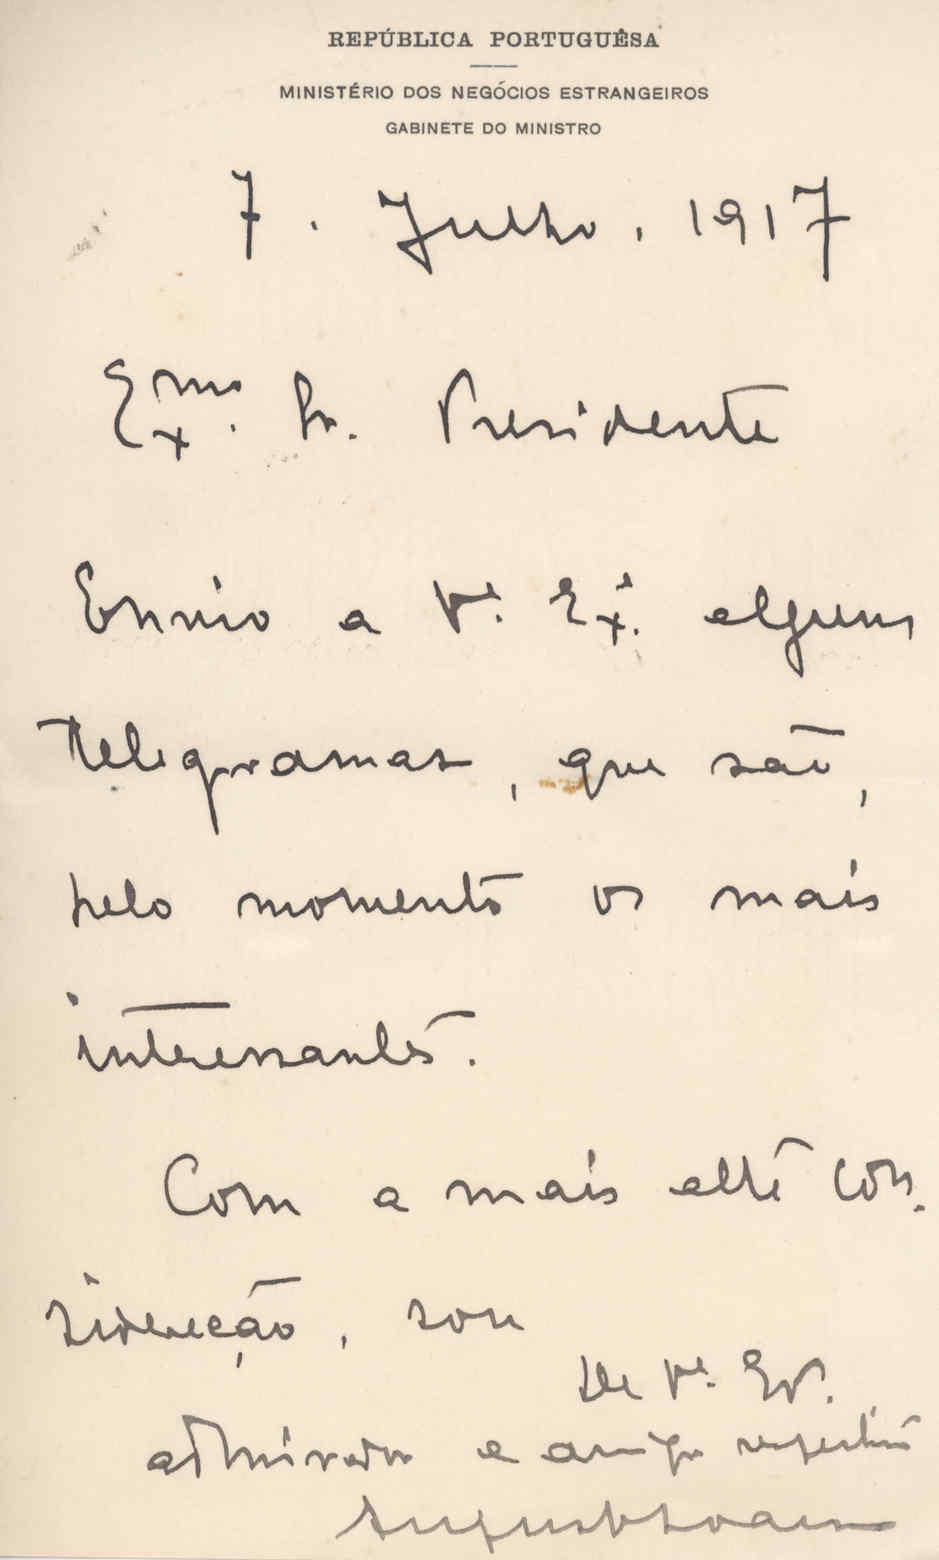 REPÚBLICA PORTUGUÊSA
MINISTÉRIO DOS NEGÓCIOS ESTRANGEIROS
GABINETE DO MINISTRO
7. Julho, 1917
Exmo. Sr. Presidente
Envio a Va. Exa. alguns
telegramas, que são,
pelo momento os mais
interessantes.
Com a mais alta con-
sideração, sou
De Va. Ex.
admirador e amigo respeitoso
Augusto Soares